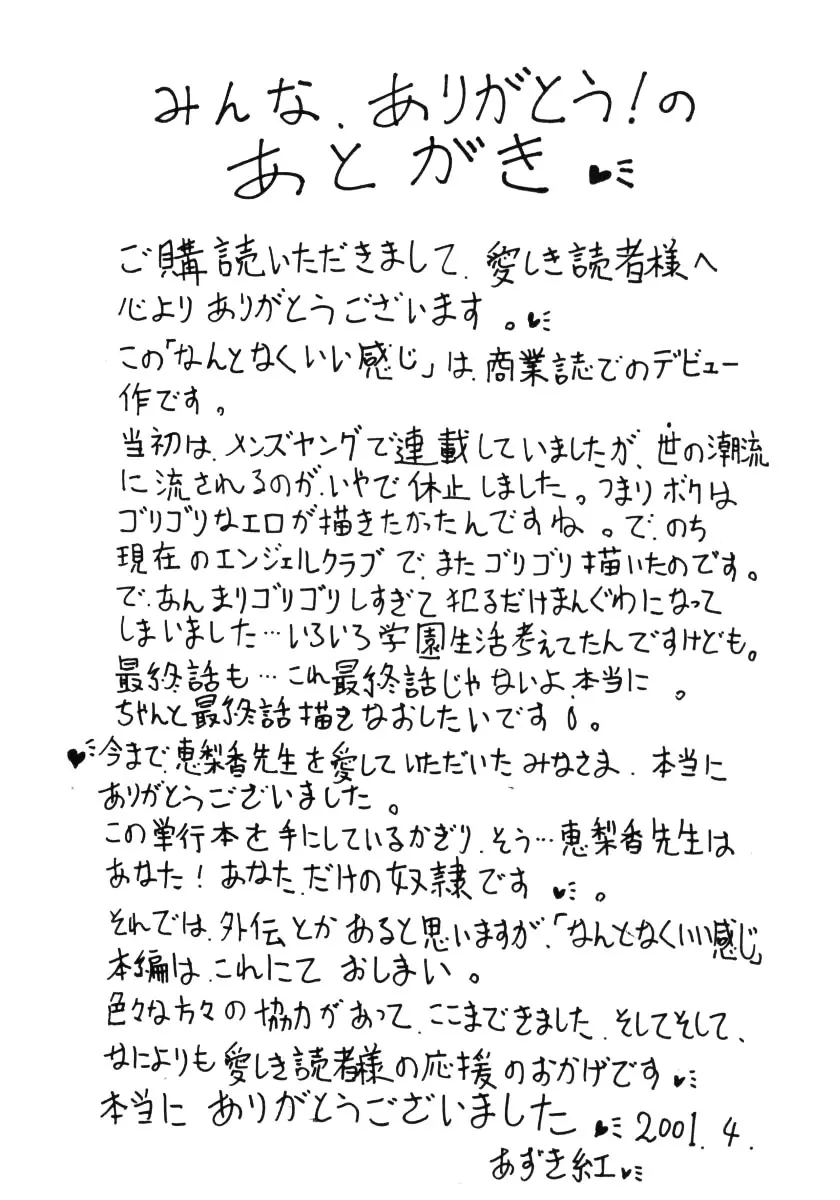 みんな、ありがとう!の
あとがき♥
ご購読いただきまして、愛しき読者様へ
心よりありがとうございます。♥
この「なんとなくいい感じ」は、商業誌でのデビュー
作です。
当初は、メンズヤングで連載していましたが、世の潮流
に流されるのが、いやで休止しました。つまりボクは
ゴリゴリなエロが描きたかったんですね。で、のち
現在のエンジェルクラブで、またゴリゴリ描いたのです。
で、あんまりゴリゴリしすぎて犯るだけまんぐわになって
しまいました…いろいろ学園生活考えてたんですけども。
最終話も…これ最終話じゃないよ、本当に。
ちゃんと最終話描きなおしたいです。
♥今まで、恵梨香先生を愛していただいたみなさま、本当に
ありがとうございました。
この単行本を手にしているかぎり、そう…恵梨香先生は
あなた!あなただけの奴隷です♥。
それでは、外伝とかあると思いますが、「なんとなくいい感じ」
本編は、これにておしまい。
色々な方々の協力があって、ここまできました、そしてそして、
なによりも愛しき読者様の応援のおかげです♥
本当にありがとうございました♥2001.4.
あずき紅♥